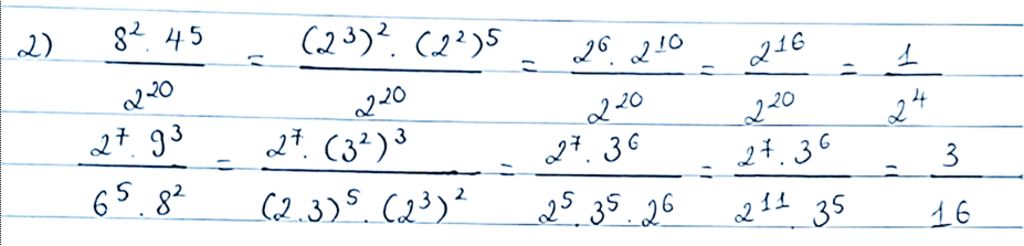 2) 8². 45 / 2²⁰ = (2³)². (2²)⁵ / 2²⁰ = 2⁶. 2¹⁰ / 2²⁰ = 2¹⁶ / 2²⁰ = 1 / 2⁴
2⁷. 9³ / 6⁵. 8² = 2⁷. (3²)³ / (2.3)⁵. (2³)² = 2⁷. 3⁶ / 2⁵. 3⁵. 2⁶ = 2⁷. 3⁶ / 2¹¹. 3⁵ = 3 / 16